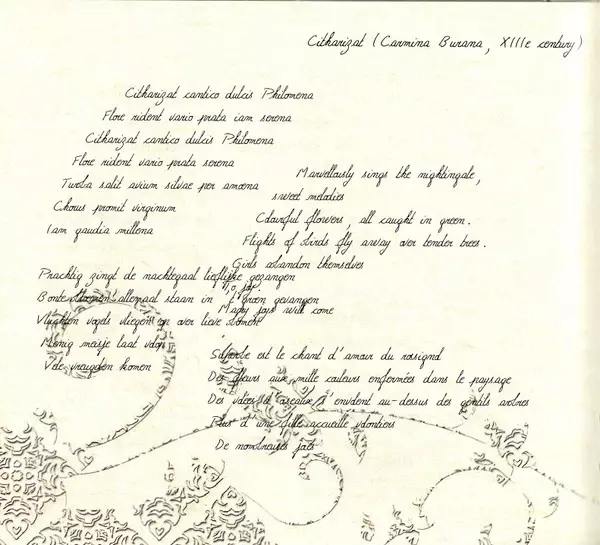 Citharizat (Carmina Burana, XIIIe century)
Citharizat cantico dulcis Philomena
Flore rident vario prata iam serena
Citharizat cantico dulcis Philomena
Flore rident vario prata serena
Turba salit avium silvae per amoena
Chorus promit virginum
Iam gaudia millena
Marvellously sings the nightingale,
sweet melodies
Colourful flowers, all caught in green.
Flights of birds fly away over tender trees.
Girls abandon themselves
Many joys will come
Prachtig zingt de nachtegaal lieflijke gezangen
Bonte bloemen allemaal staan in 't groen gevangen
Vluchten vogels vliegen op over lieve bomen
Menig meisje laat
Vele vreugden komen
Superbe est le chant d'amour du rossignol
Des fleurs aux mille couleurs enfermées dans le paysage
Des d'oiseaux s'envolent au-dessus des gentils arbres
Plus d'une fille accueille volontiers
De nombreuses